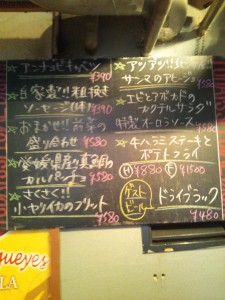 アンチョビキャベツ
¥390
自家製!!粗挽き
ソーセージ(1本)¥390
おまかせ!!前菜の
盛り合わせ ¥580
愛媛県産真鯛の
カルパッチョ ¥580
さくさく!!
小ヤリイカのフリット
¥580
アツアツ!!
サンマのアヒージョ
¥580
エビとアボカドの
カクテルサラダ
特製オーロラソース ¥580
牛ハラミステーキと
ポテトフライ
(H)¥880 (F)¥1500
ゲスト
ビール
ドライブラック
¥480
gueyes
LA